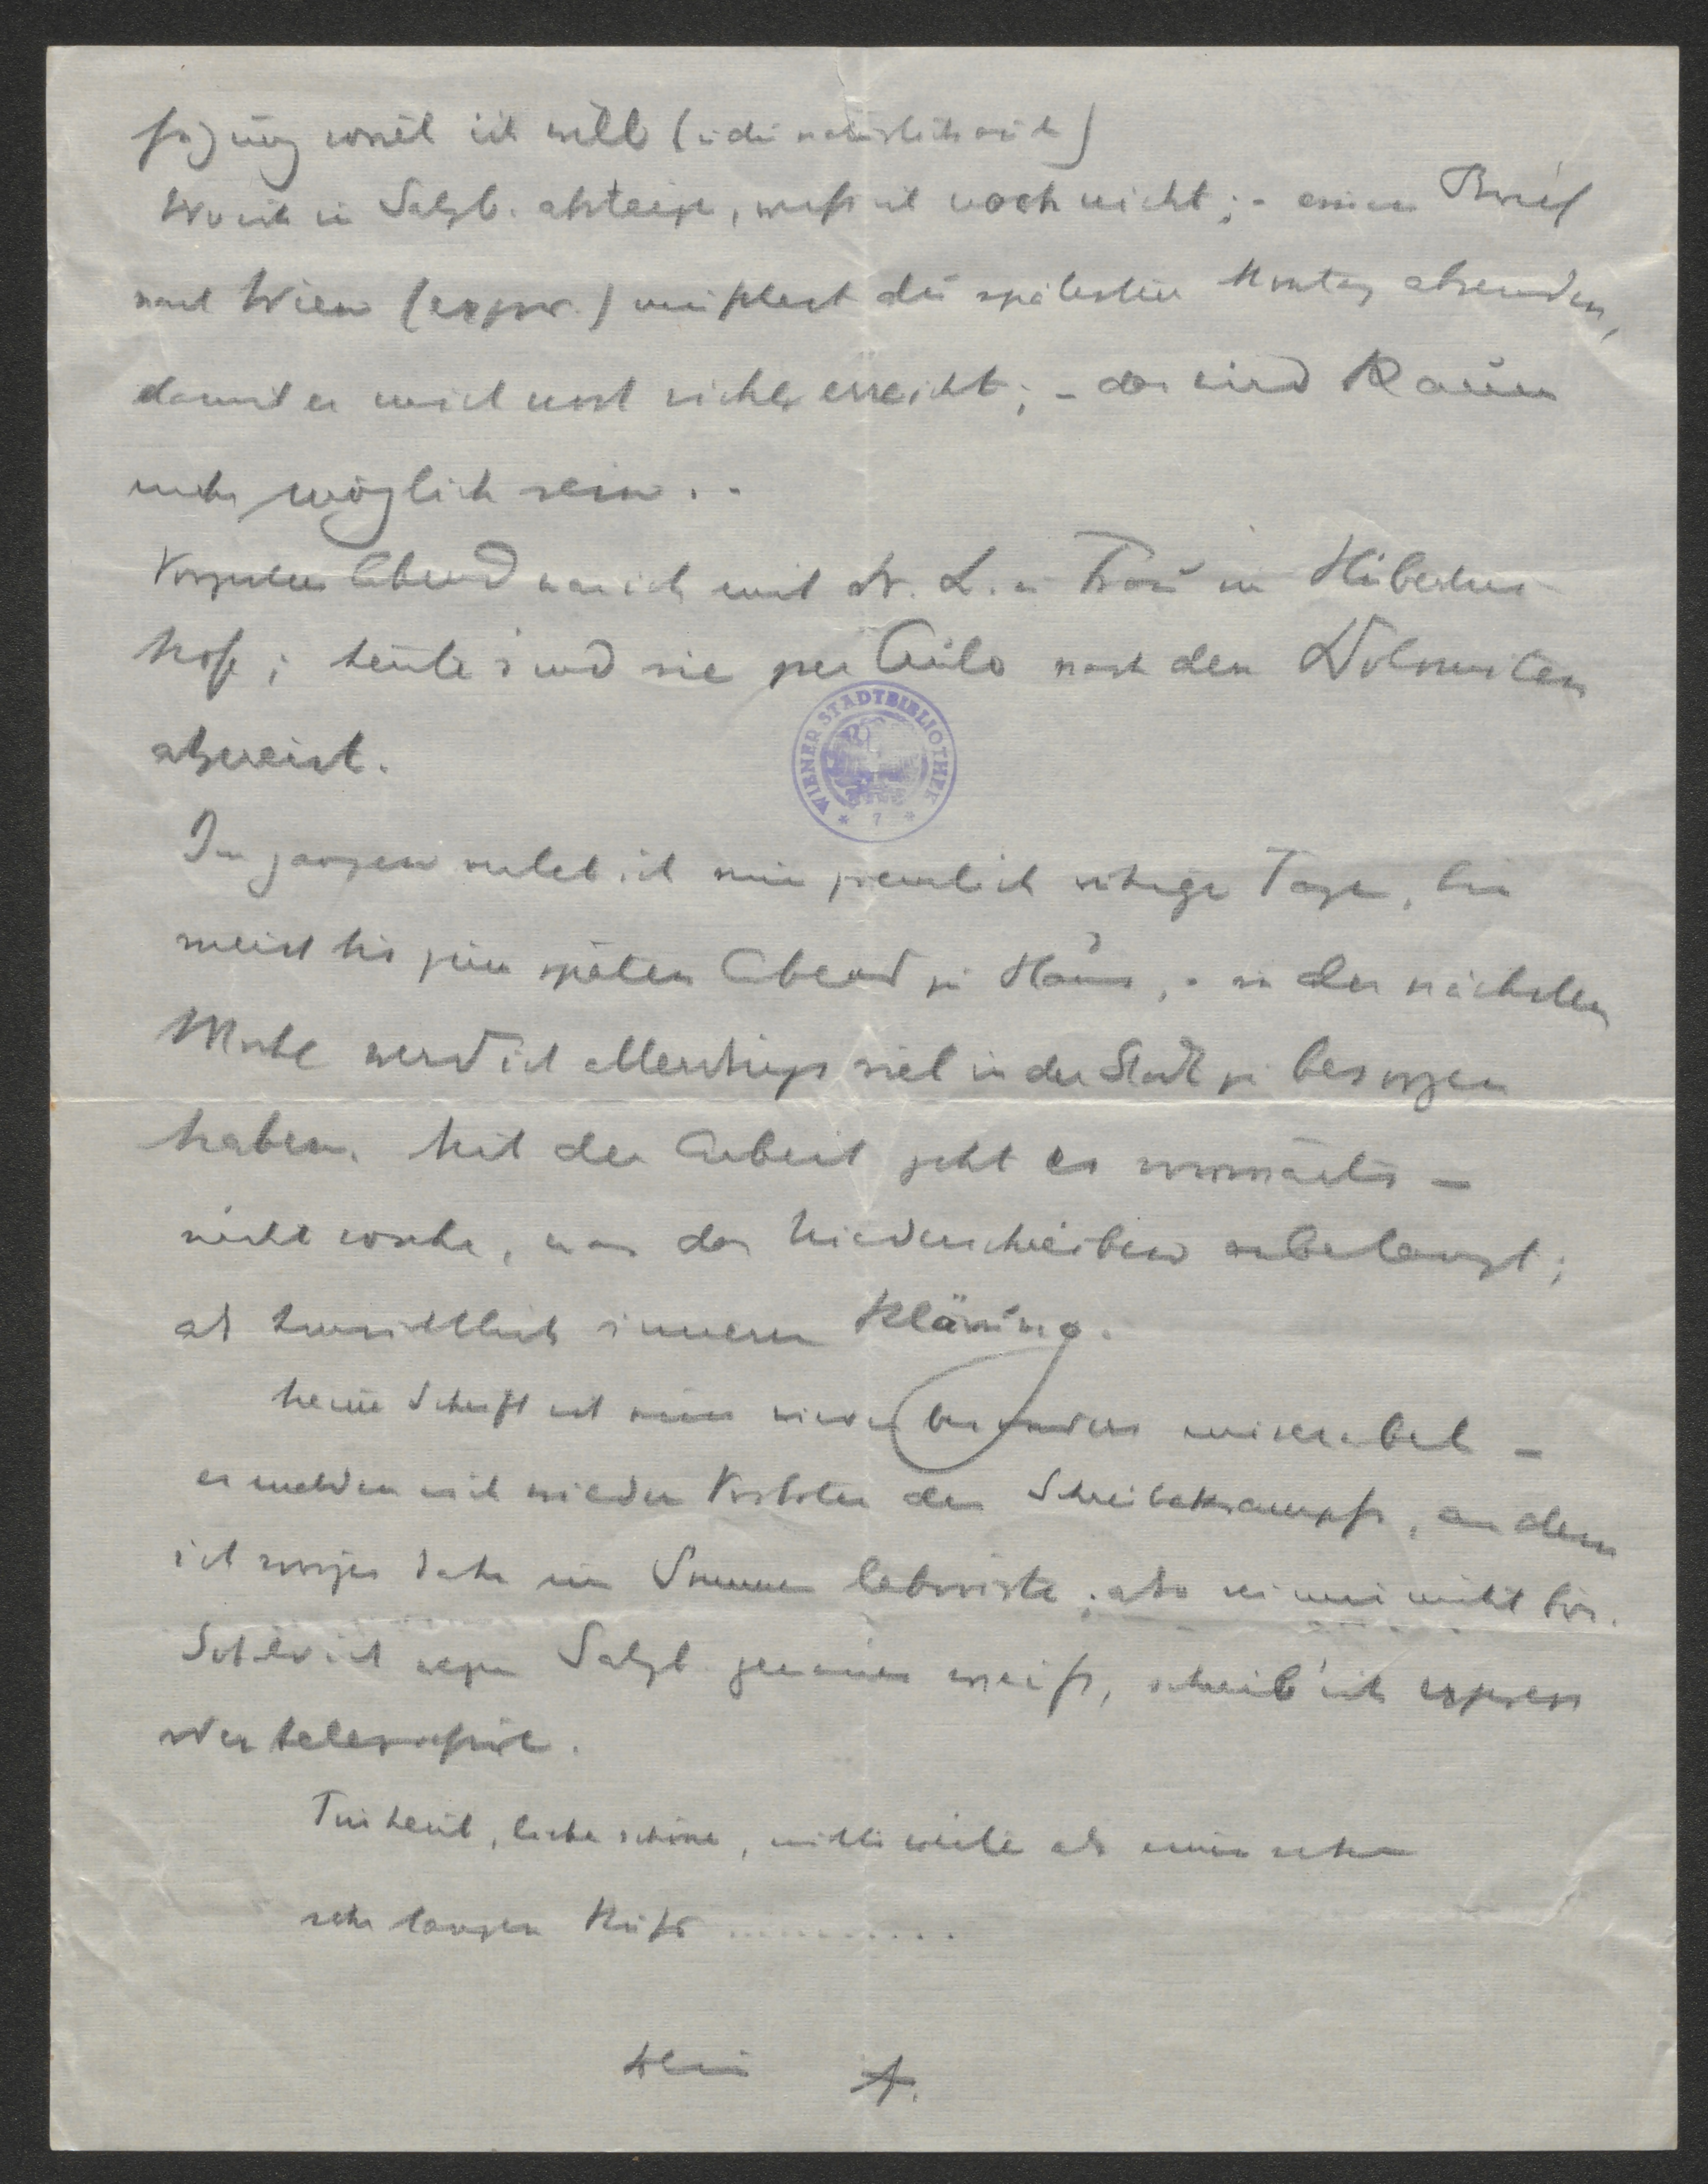 fügung soviel ich will (u du natürlich auch)
Wo ich in Salzb. absteige, weiß ich noch nicht; - einen Brief
nach Wien (express.) müsstest du spätestens Montag absenden,
damit er mich noch sicher erreicht; - das wird kaum
mehr möglich sein..
Vorgestern Abend war ich mit Dr. L. u Frau im Hubertus
hof; heute sind sie per Auto nach den Dolomiten
abgereist.
WIENER STADTBIBLIOTHEK
* 7 *
Im ganzen verleb ich nun ziemlich ruhige Tage, bin
meist bis zum späten Abend zu Haus, - in der nächsten
Woche werd ich allerdings viel in der Stadt zu besorgen
haben. Mit der Arbeit geht es vorwärts –
nicht sosehr, was das Niederschreiben anbelangt;
als hinsichtlich innerer Klärung.
Meine Schrift ist wieder besonders miserabel –
es melden sich wieder Vorboten des Schreibekrampfs, an dem
ich voriges Jahr im Sommer laborirte; also sei mir nicht bös.
Sobald ich wegen Salzb. genaues weiß, schreib' ich express
oder telegrafire.
Für heut, liebe schöne, mittlerweile als einen sehr
sehr langen Kuß ..........
Dein A.